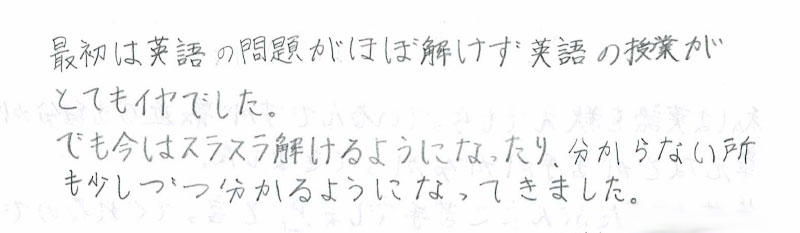 最初は英語の問題がほぼ解けず英語の授業が
とてもイヤでした。
でも今はスラスラ解けるようになったり、分からない所
も少しづつ分かるようになってきました。